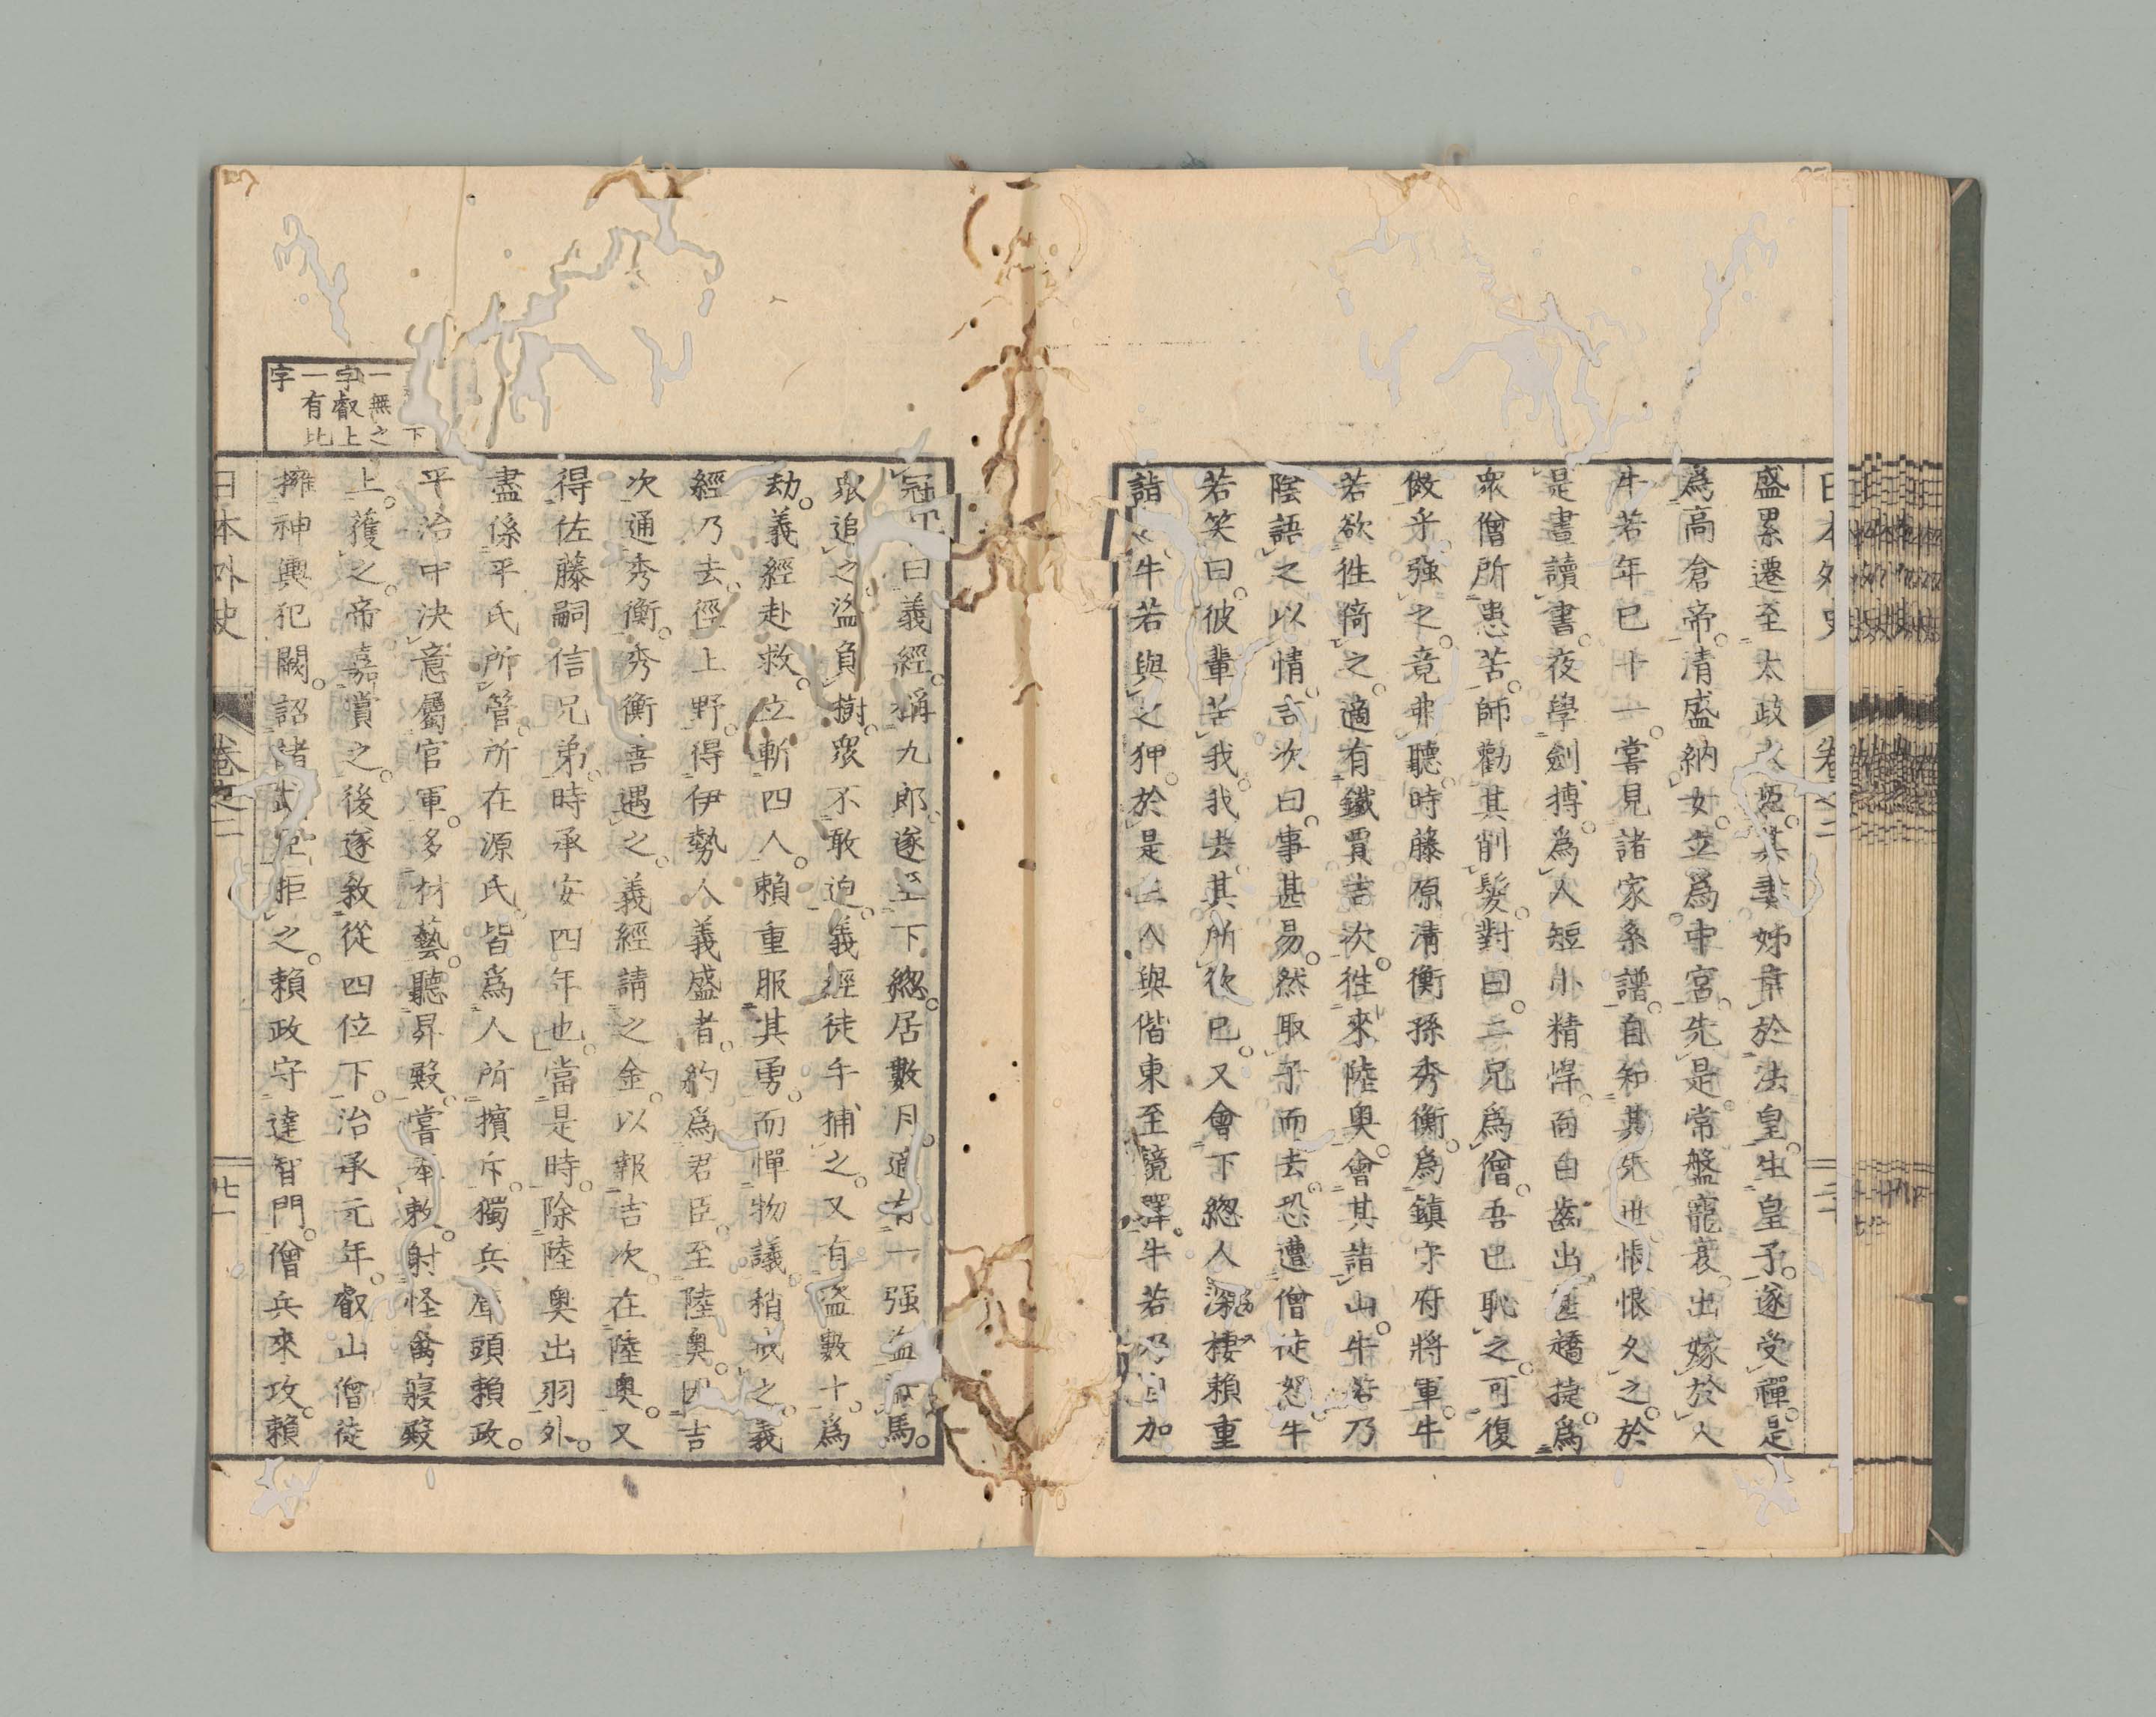 日本外史 卷之二 二十
盛累遷至太政大臣。其妻姊幸於法皇。生皇子。遂受禪。是
爲高倉帝。清盛納女。立爲中宮。先是。常盤寵衰。出嫁於人。
牛若年已十一。嘗見諸家系譜。自知其先世。悵恨久之。於
是晝讀書。夜學劍摶。爲人短小精悍。面白齒出。趫捷。爲
衆僧所患苦。師勸其削髮。對曰。二兄爲僧。吾已恥之。可復
傚乎。强之。竟弗聽。時藤原清衡孫秀衡。爲鎮守府將軍。牛
若欲徃倚之。適有鐵賈吉次。徃來陸奧。會其詣山。牛若乃
陰語之以情。言次曰。事甚易。然取子而去。恐遭僧徒怒。牛
若笑曰。彼輩苦我。我去。其所欲已。又會下總人深栖賴重
詣。牛若與之狎。於是三人與偕東至鏡驛。牛若乃自加
冠。曰義經。稱九郎。遂至下總。居數月。適有一强盜 馬。
衆追之。盜負樹。衆不敢迫。義經徒手捕之。又有盜數十。爲
劫。義經赴救。立斬四人。賴重服其勇。而憚物議。稍戒之。義
經乃去。徑上野。得伊勢人義盛者。約爲君臣。至陸奧。因吉
次通秀衡。秀衡善遇之。義經請之金。以報吉次。在陸奧。又
得佐藤嗣信兄弟。時承安四年也。當是時。除陸奧出羽外。
盡係平氏所管。所在源氏。皆爲人所擯斥。獨兵庫頭賴政。
平治中決意屬官軍。多材藝。聽昇殿。嘗奉敕。射怪禽寢殿
上。獲之。帝嘉賞之。後遂敘從四位下。治承元年。叡山僧徒
擁神輿犯闕。詔諸武臣拒之。賴政守達智門。僧兵來攻。賴
下
一無之
字叡上
一有比
字
日本外史 卷之二 廿一